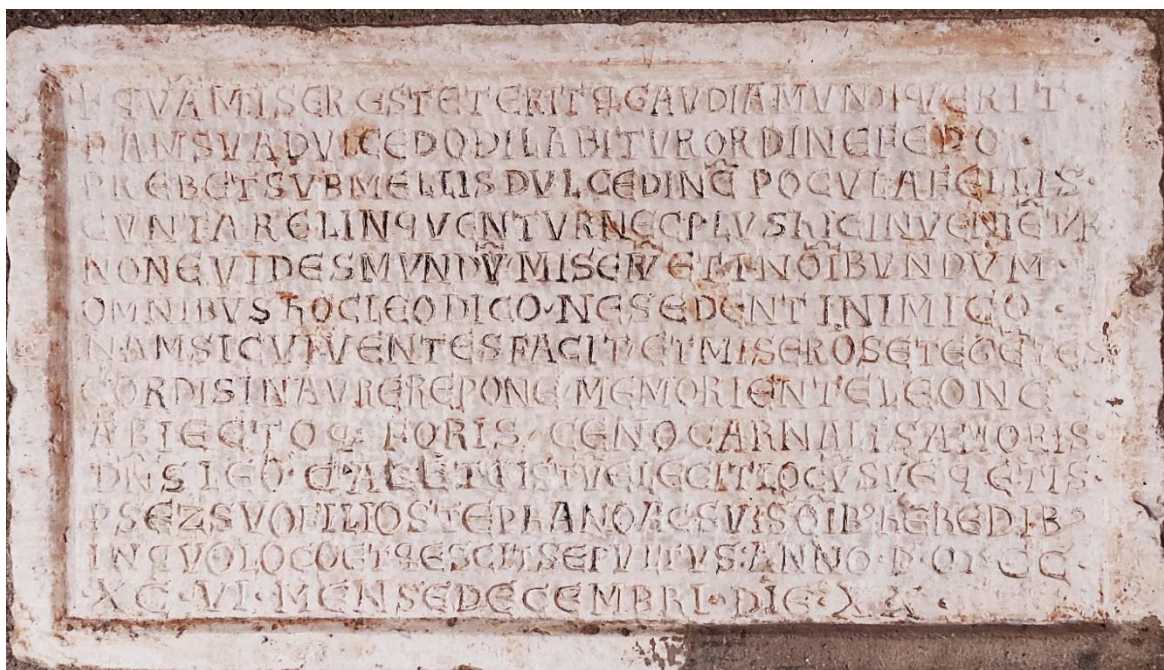 + QVA MISER EST ET ERIT Q GAVDIA MVNDI QVERIT ·
NAM SVA DVLCEDO DILABITVR ORDINE FEDO ·
PREBET SVB MELLIS DVLCEDINE POCVLA FELLIS ·
CVNTA RELINQVENTVR NEC PLVS HIC INVENIETVR
NONE VIDES MVNDV̄ MISERV̄ ET
OMNIBVS HOC LEO DICO · NE SEDENT INIMICO
NAM SIC VIVENTES FACIT ET MISEROS ET EGETES
CORDIS IN AVRE REPONE MEMORIENTE LEONE
ABIECTO Q FORIS · CENO CARNALIS AMORIS ·
DN̄S LEO · ISTV ELEGIT LOCV̄ SVE QETIS ·
P SE Z SVO FILIO STEPHANO AC SVIS OIB9 HEREDIB9
IN QVO LOCO ET QESCIT SEPVLTVS · ANNO · D · M · CC ·
XC · VI · MENSE DECEMBRI · DIE · X X ·